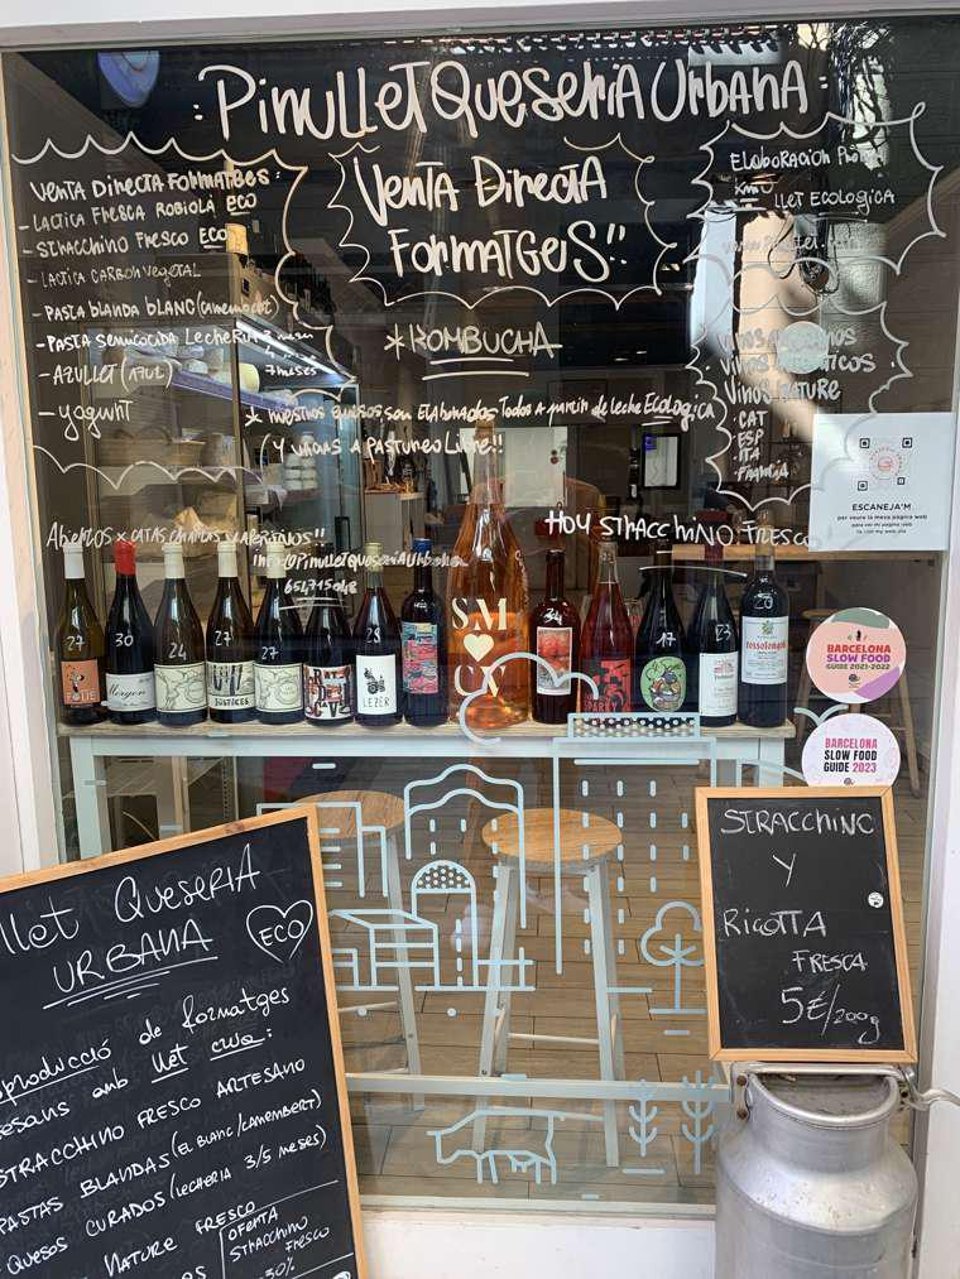 : Pinullet Queseria Urbana :
Venta Directa Formatges :
- Lactica Fresca Robiola eco
- Stracchino Fresco Eco
- Lactica carbon vegetal
- Pasta blanda blanc (camembert)
- Pasta semicocida Lecheria
7 meses
- Azullet (Azul)
- yogurt
Venta Directa
Formatges!!
* Kombucha
* nuestros quesos son Elaborados Todos a partir de leche Ecologica
(Y vacas a pastoreo Libre!!
Elaboracion
km0
llet Ecologica
Vinos
Vinos
Vinos Nature
· CAT
· ESP
· ITA
· Francia
ESCANEJA'M
per veure la meva pàgina web
Abiertos x catas
info@pinulletqueseriaurbana
654715048
Hoy Stracchino Fresco
27
30
24
27
27
28
34
17
23
20
Morgon
LEZER
SPARKY
SM
CV
BARCELONA
SLOW FOOD
GUIDE 2021-2022
BARCELONA
SLOW FOOD
GUIDE 2023
llet Queseria
Urbana
ECO
producció de formatges
esans amb llet crua :
Stracchino fresco artesano
Pastas blandas (el blanc/camembert)
Quesos curados (lecheria 3/5 meses)
Nature fresco
oferta
Stracchino
fresco
30%
Stracchino
y
Ricotta
Fresca
5€/200g